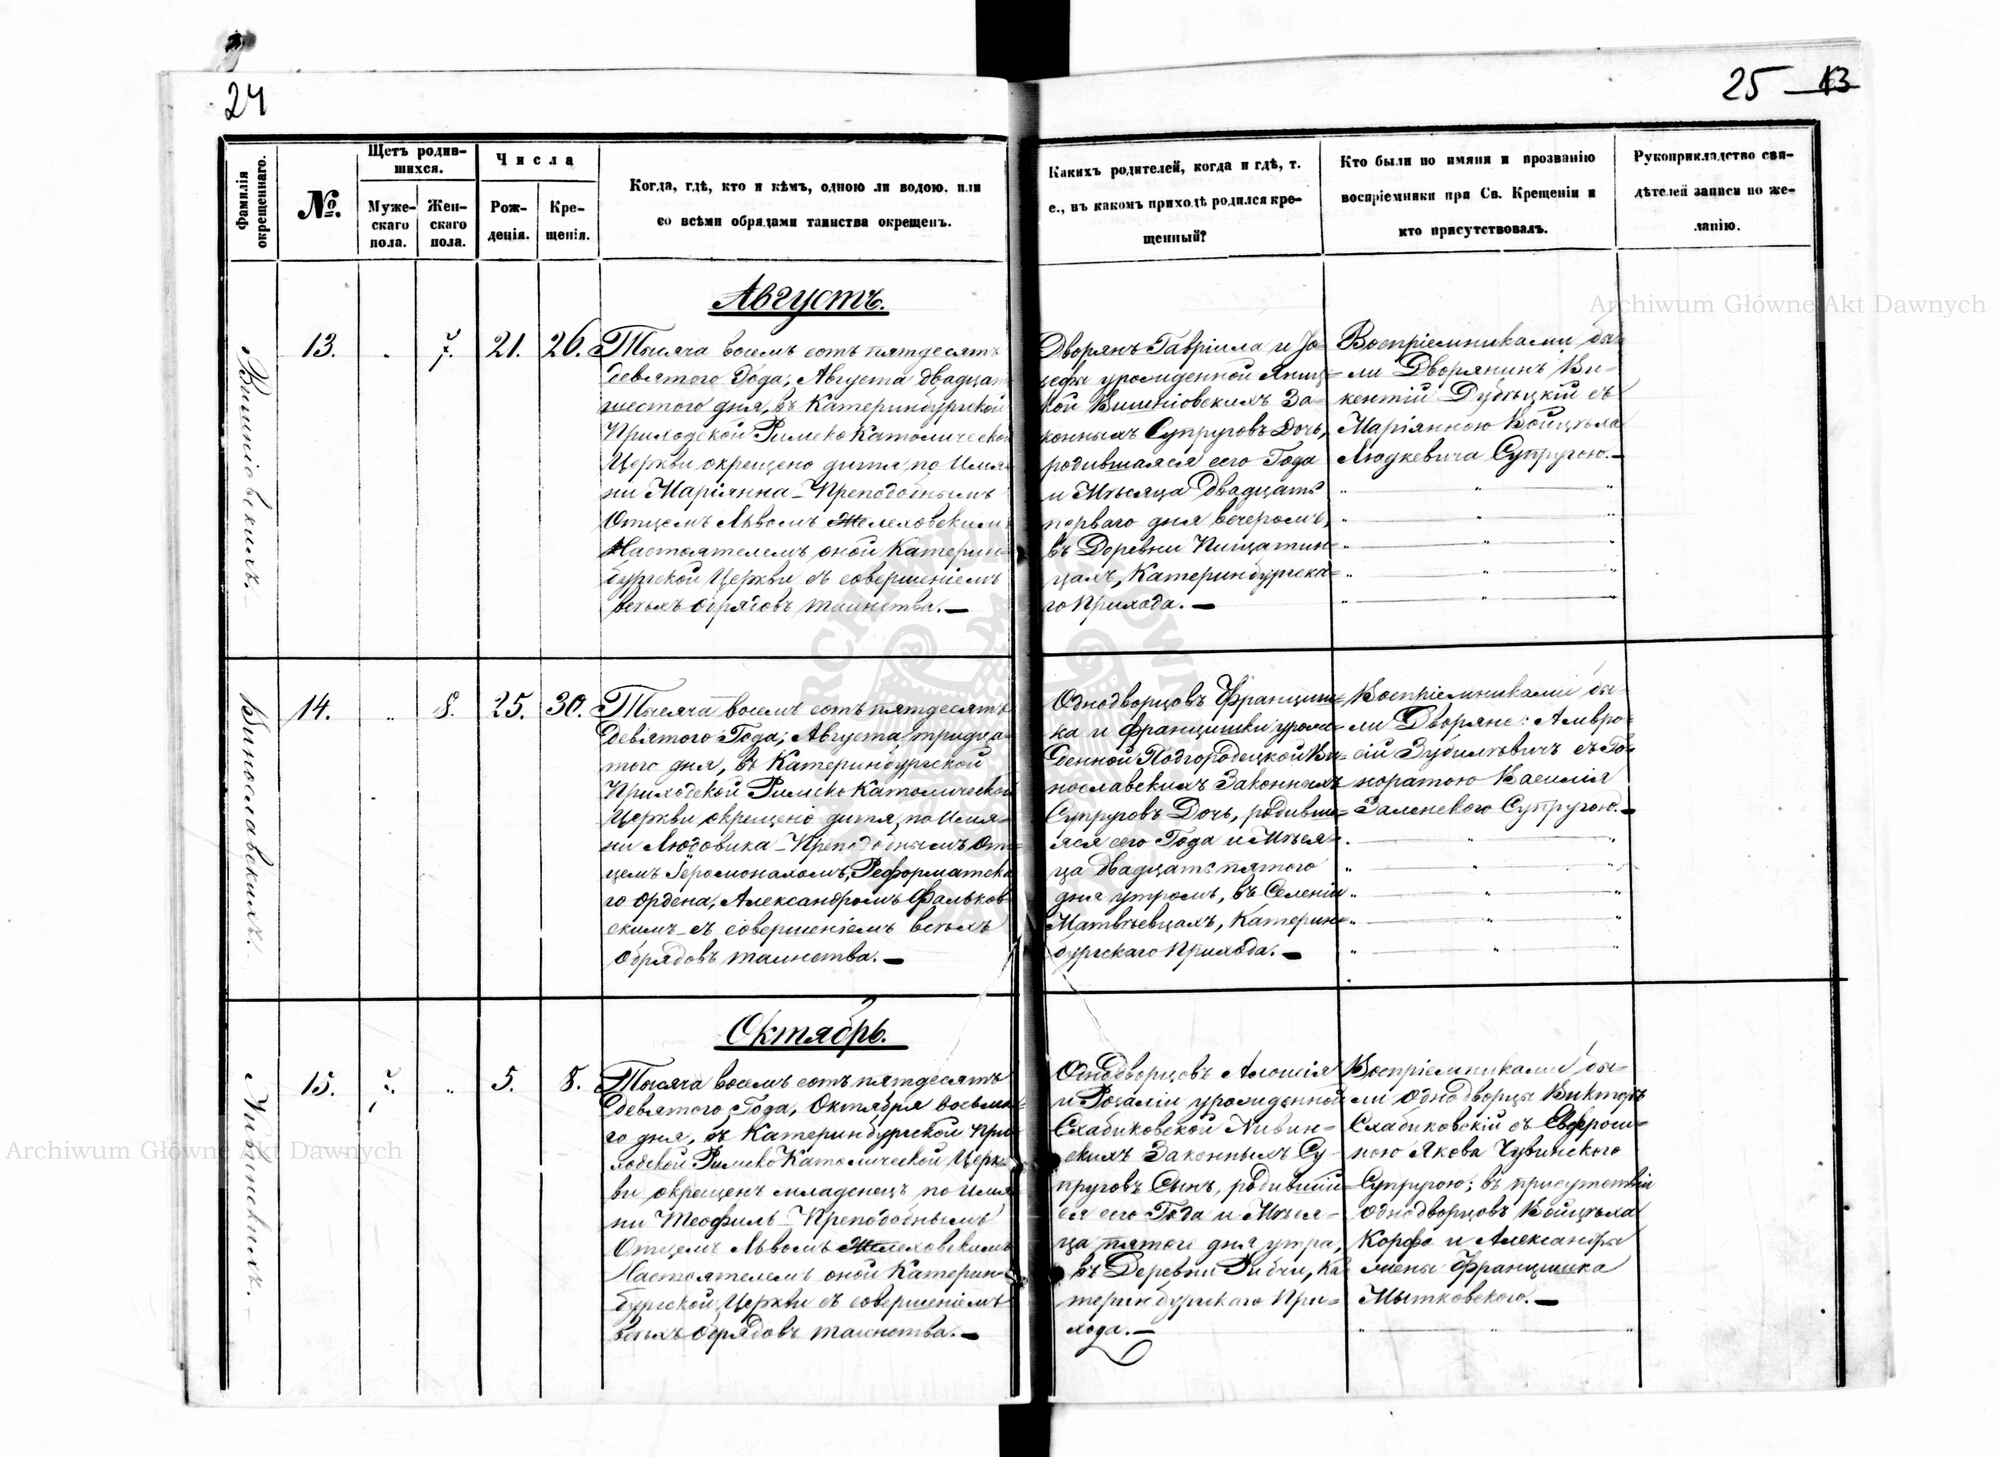 24
25 — 13
Фамилія окрещеннаго.
№.
Щетъ родив-
шихся.
Муже-
скаго
пола.
Жен-
скаго
пола.
Числа
Рож-
денія.
Кре-
щенія.
Когда, гдѣ, кто и кѣмъ, одною ли водою. или
со всѣми обрядами таинства окрещенъ.
Какихъ родителей, когда и гдѣ, т.
е., въ какомъ приходѣ родился кре-
щенный?
Кто были по имяни и прозванію
воспріемники при Св. Крещеніи и
кто присутствовалъ.
Рукоприкладство сви-
дѣтелей записи по же-
ланію.
Августъ.
Вишніовскихъ.
13.
7.
21.
26.
Тысяча восемъ сотъ пятдесятъ
девятого Года, Августа двадцать
шестого дня, въ Катеринбургской
Приходской Римско Католической
Церкви окрещено дитя, по Имя-
ни Маріянна – Преподобнымъ
Отцемъ Львомъ Желеховскимъ
Настоятелемъ оной Катерин-
бургской Церкви съ совершеніемъ
всѣхъ обрядовъ таинства. —
Дворянъ Гавріила и Іо-
зефы урожденной
Вишніовскихъ За-
конныхъ Супруговъ Дочь,
родившаяся сего Года
и Мѣсяца двадцать
перваго дня вечеромъ,
въ Деревни Пищатин-
цахъ, Катеринбургска-
го Прихода. —
Воспріемниками бы-
ли Дворянинъ Ви-
кентій Дубѣцкій съ
Маріянною Войцѣха
Людкевича Супругою. —
Винославскихъ.
14.
8.
25.
30.
Тысяча восемъ сотъ пятдесятъ
девятого Года, Августа тридца-
того дня, въ Катеринбургской
Приходской Римско Католической
Церкви окрещено дитя, по Имя-
ни Людовика – Преподобнымъ От-
цемъ Іеромонахомъ, Реформатска-
го Ордена, Александромъ Фальков-
скимъ съ совершеніемъ всѣхъ
обрядовъ таинства. —
Однодворцовъ Францишка
и Францишки урож-
денной Подгородецкой Ви-
нославскихъ Законныхъ
Супруговъ Дочь, родивша-
яся сего Года и Мѣся-
ца двадцать пятого
дня утромъ, въ Селеніи
Матвѣевцахъ, Катерин-
бургскаго Прихода. —
Воспріемниками бы-
ли Дворяне: Амвро-
сій Зубилѣвичъ съ Го-
норатою Василія
Заленского Супругою. —
Октябрь.
Нивинскихъ.
15.
7.
5.
8.
Тысяча восемъ сотъ пятдесятъ
девятого Года, Октября восьма-
го дня, въ Катеринбургской При-
ходской Римско Католической Церк-
ви окрещенъ младенецъ по Имя-
ни Теофиль – Преподобнымъ
Отцемъ Львомъ Желеховскимъ
Настоятелемъ оной Катерин-
бургской Церкви съ совершеніемъ
всѣхъ обрядовъ таинства. —
Однодворцовъ Алоизія
и Розаліи урожденной
Слабиковской Нивин-
скихъ Законныхъ Су-
пруговъ Сынъ, родившій-
ся сего Года и Мѣся-
ца пятого дня утра,
въ Деревни Рибчи, Ка-
теринбургскаго При-
хода. —
Воспріемниками бы-
ли Однодворцы Викторъ
Слабиковскій съ Евфрози-
ною Якова Чувинского
Супругою; въ присутствіи
Однодворцовъ Войцѣха
Корфо и Александры
жены Францишка
Мытковского. —
Archiwum Główne Akt Dawnych
Archiwum Główne Akt Dawnych